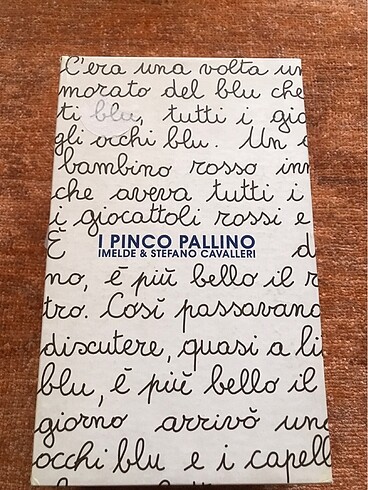 C'era una volta un
morato del blu che
ti blu, tutti i gio
gli occhi blu. Un
bambino rosso inn
che aveva tutti i
i giocattoli rossi e
È
I PINCO PALLINO
d
IMELDE & STEFANO CAVALLERI
no, é più bello il r
tro. Così passavano
discutere, quasi a li
blu, é più bello il
giorno arrivò un
occhi blu e i capell